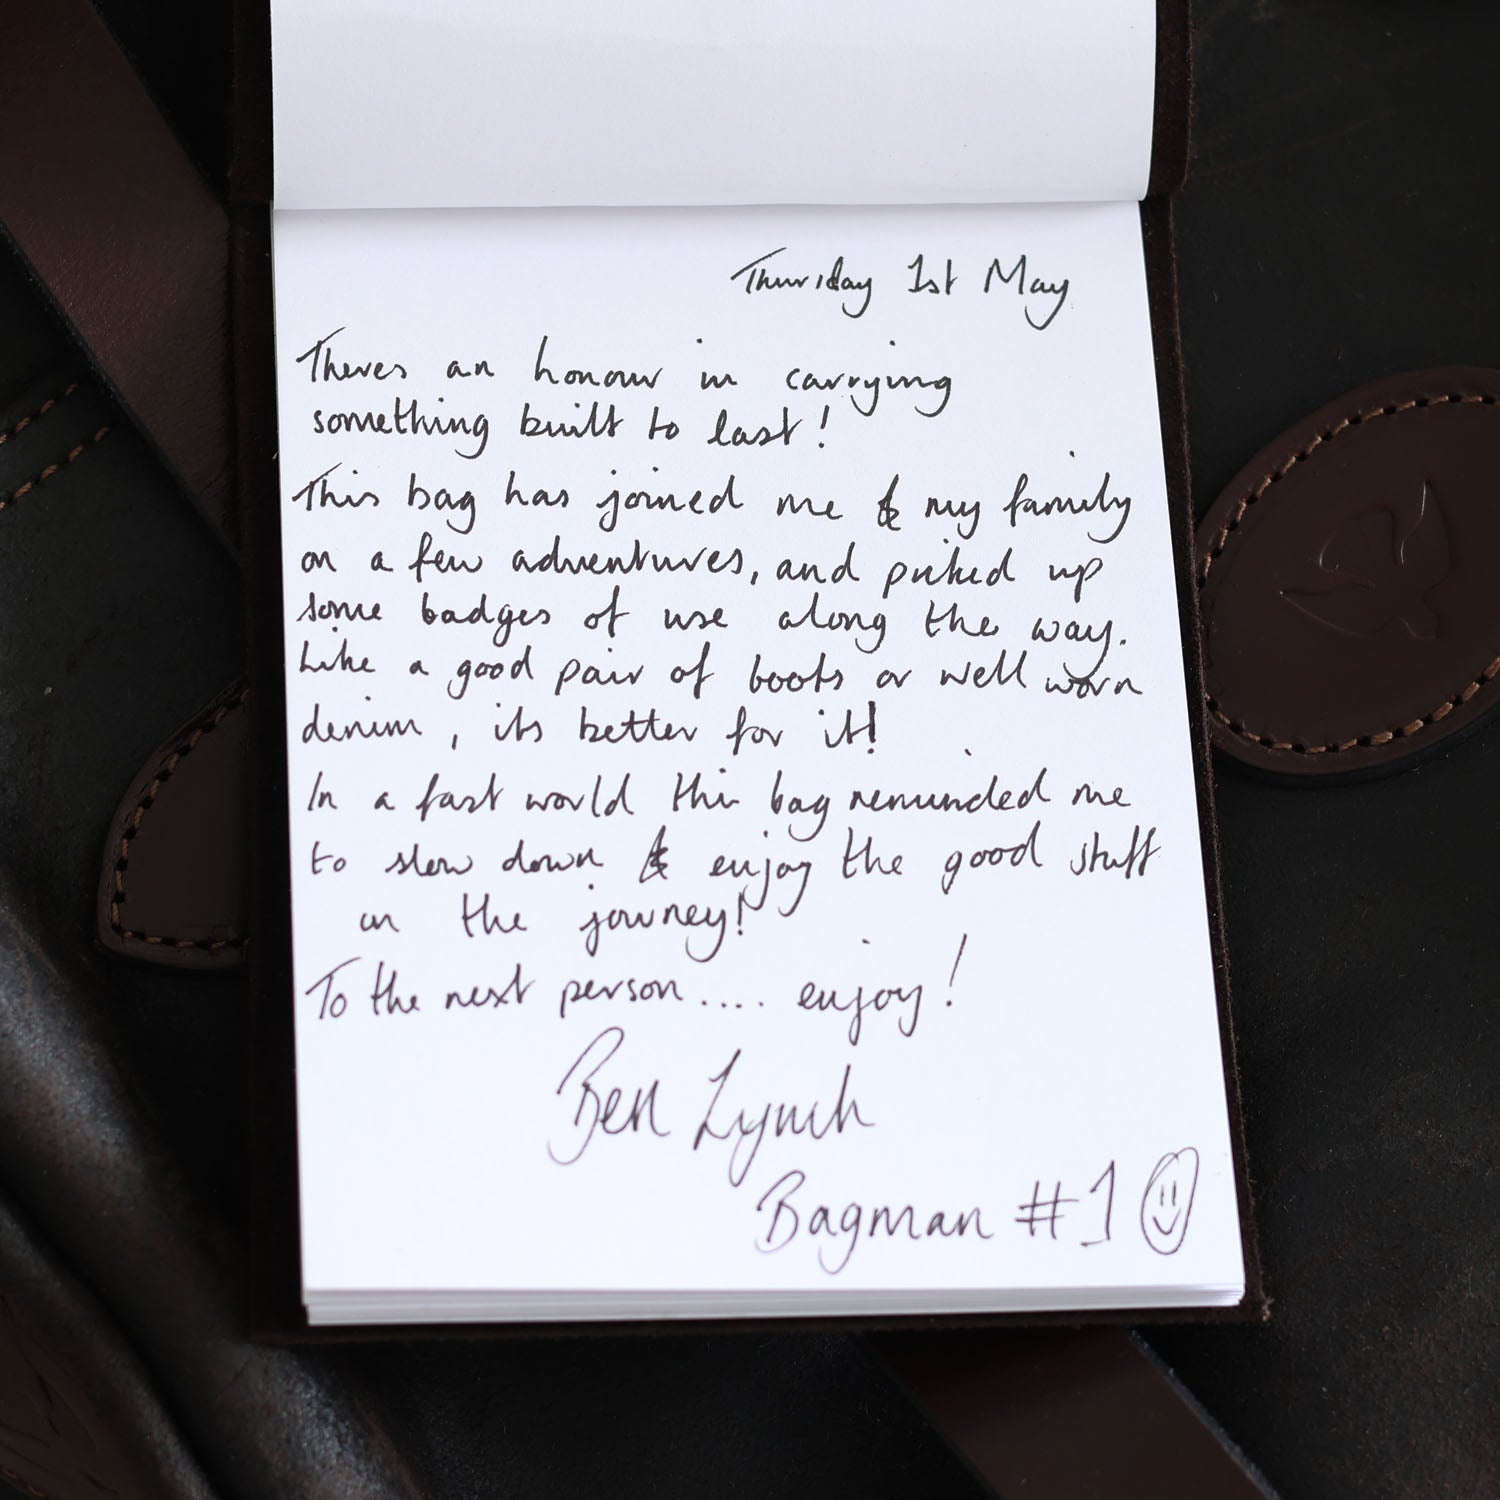 Thursday 1st May
Theres an honour in carrying
something built to last!
This bag has joined me & my family
on a few adventures, and picked up
some badges of use along the way.
Like a good pair of boots or well worn
denim, its better for it!
In a fast world this bag reminded me
to slow down & enjoy the good stuff
on the journey!
To the next person.... enjoy!
Ben Lynch
Bagman #1